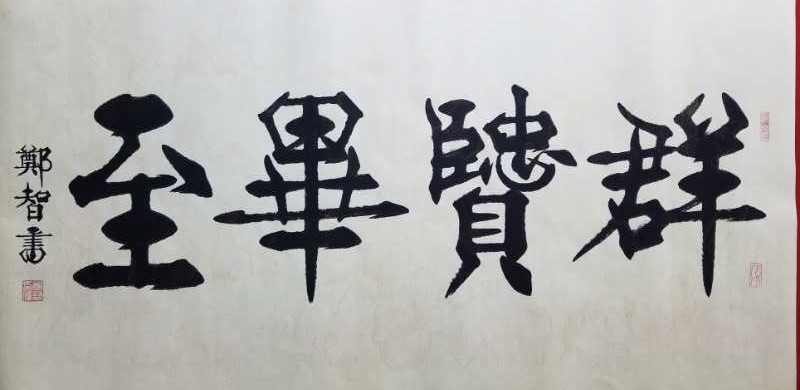 群贒畢至
鄭智書